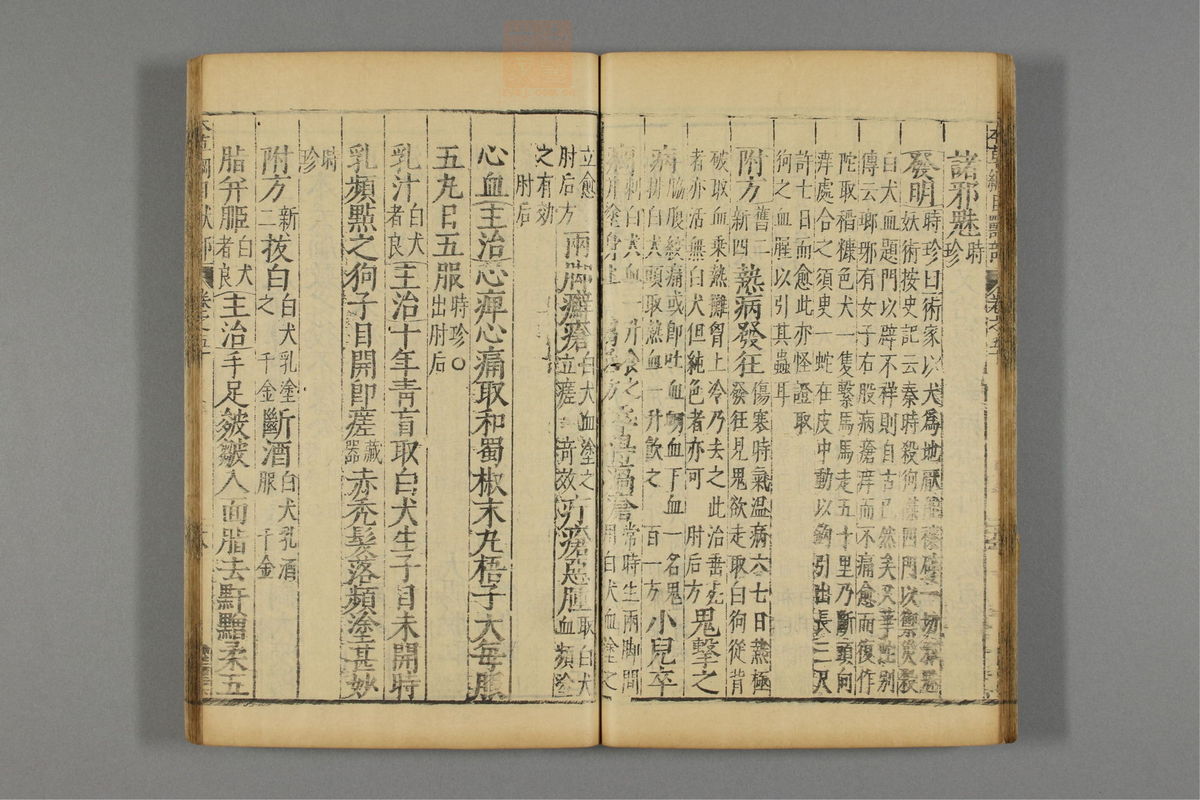 諸邪魅時珍
發明時珍曰術家以犬為地厭能禳辟一切邪魅
妖術按史記云秦時殺狗磔四門以禦災殺
白犬血題門以辟不祥則自古已然矣又華佗別
傳云瑯琊有女子右股病瘡痒而不痛愈而復作
陀取稻糠色犬一隻繫馬馬走五十里乃斷頭向
痒處合之須臾一蛇在皮中動以鉤引出長二三尺
許七日而愈此亦怪證取
狗之血腥以引其蟲耳
附方舊二新四熱病發狂傷寒時氣温病六七日熱極
發狂見鬼欲走取白狗從背
破取血乘熱攤胷上冷乃去之此治垂死
者亦活無白犬但純色者亦可肘后方鬼擊之
病脇腹絞痛或卽吐血衂血下血一名鬼
排白犬頭取熱血一升飲之百一方小兒卒
癇刺白犬血一升含之
常時生兩脚間
用白犬血塗之
立愈肘后方兩脚癬瘡白犬血塗之立瘥奇效疔瘡惡腫取白犬血頻塗
之有効肘后
心血主治心痺心痛取和蜀椒末丸梧子大每服
五丸日五服時珍○出肘后
乳汁白犬者良主治十年青盲取白犬生子目未開時
乳頻點之狗子目開卽瘥藏器赤禿髮落頻塗甚妙
時珍
附方新二拔白白犬乳塗之千金斷酒白犬乳酒服千金
脂幷䏰白犬者良主治手足皴皸入面脂去䵟䵳柔五